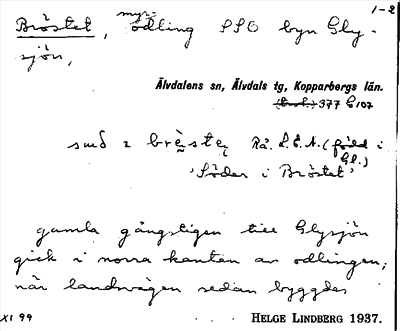 1-2
Bröstet, myr-odling SSO byn Gly-
sjön,
Älvdalens sn, Älvdals tg, Kopparbergs län.
377 C 107
i brèste Rå. L.E.A. (född i
Gl.)
'Söder i Bröstet'
gamla gångstigen till Glysjön
gick i norra kanten av odlingen,
när landsvägen sedan byggdes
XI 99 HELGE LINDBERG 1937.